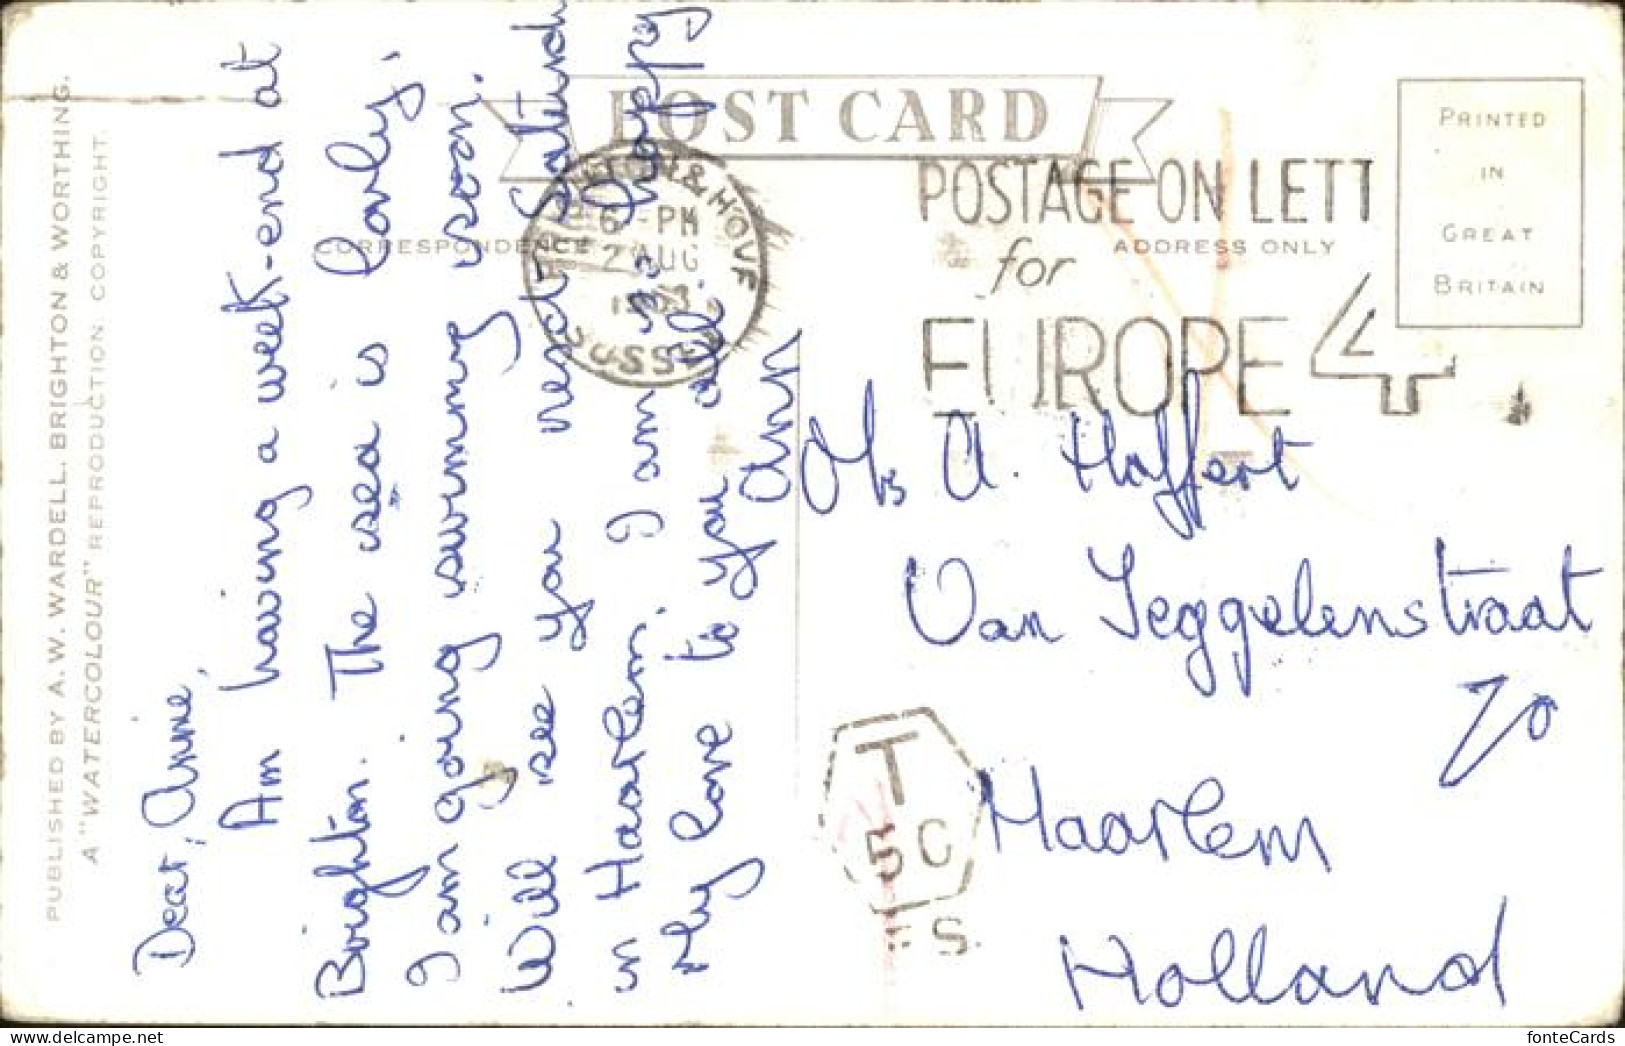 PUBLISHED BY A. W. WARDELL. BRIGHTON & WORTHING.
A "WATERCOLOUR" REPRODUCTION COPYRIGHT.
POST CARD
CORRESPONDENCE
ADDRESS ONLY
PRINTED
IN
GREAT
BRITAIN
Dear, Annie,
Am having a week-end at
Brighton. The sea is lovely.
I am going swimming soon.
Will see you next Saturd
in Haarlem. I am so happy
My love to you all.
Ann
& HOVE
SUSSEX
6 - PM
2 AUG
POSTAGE ON LETT
for
EUROPE 4
A. Hoffert
Van Zeggelenstraat
70
Haarlem
Holland
T
5 C
S.
fonteCards